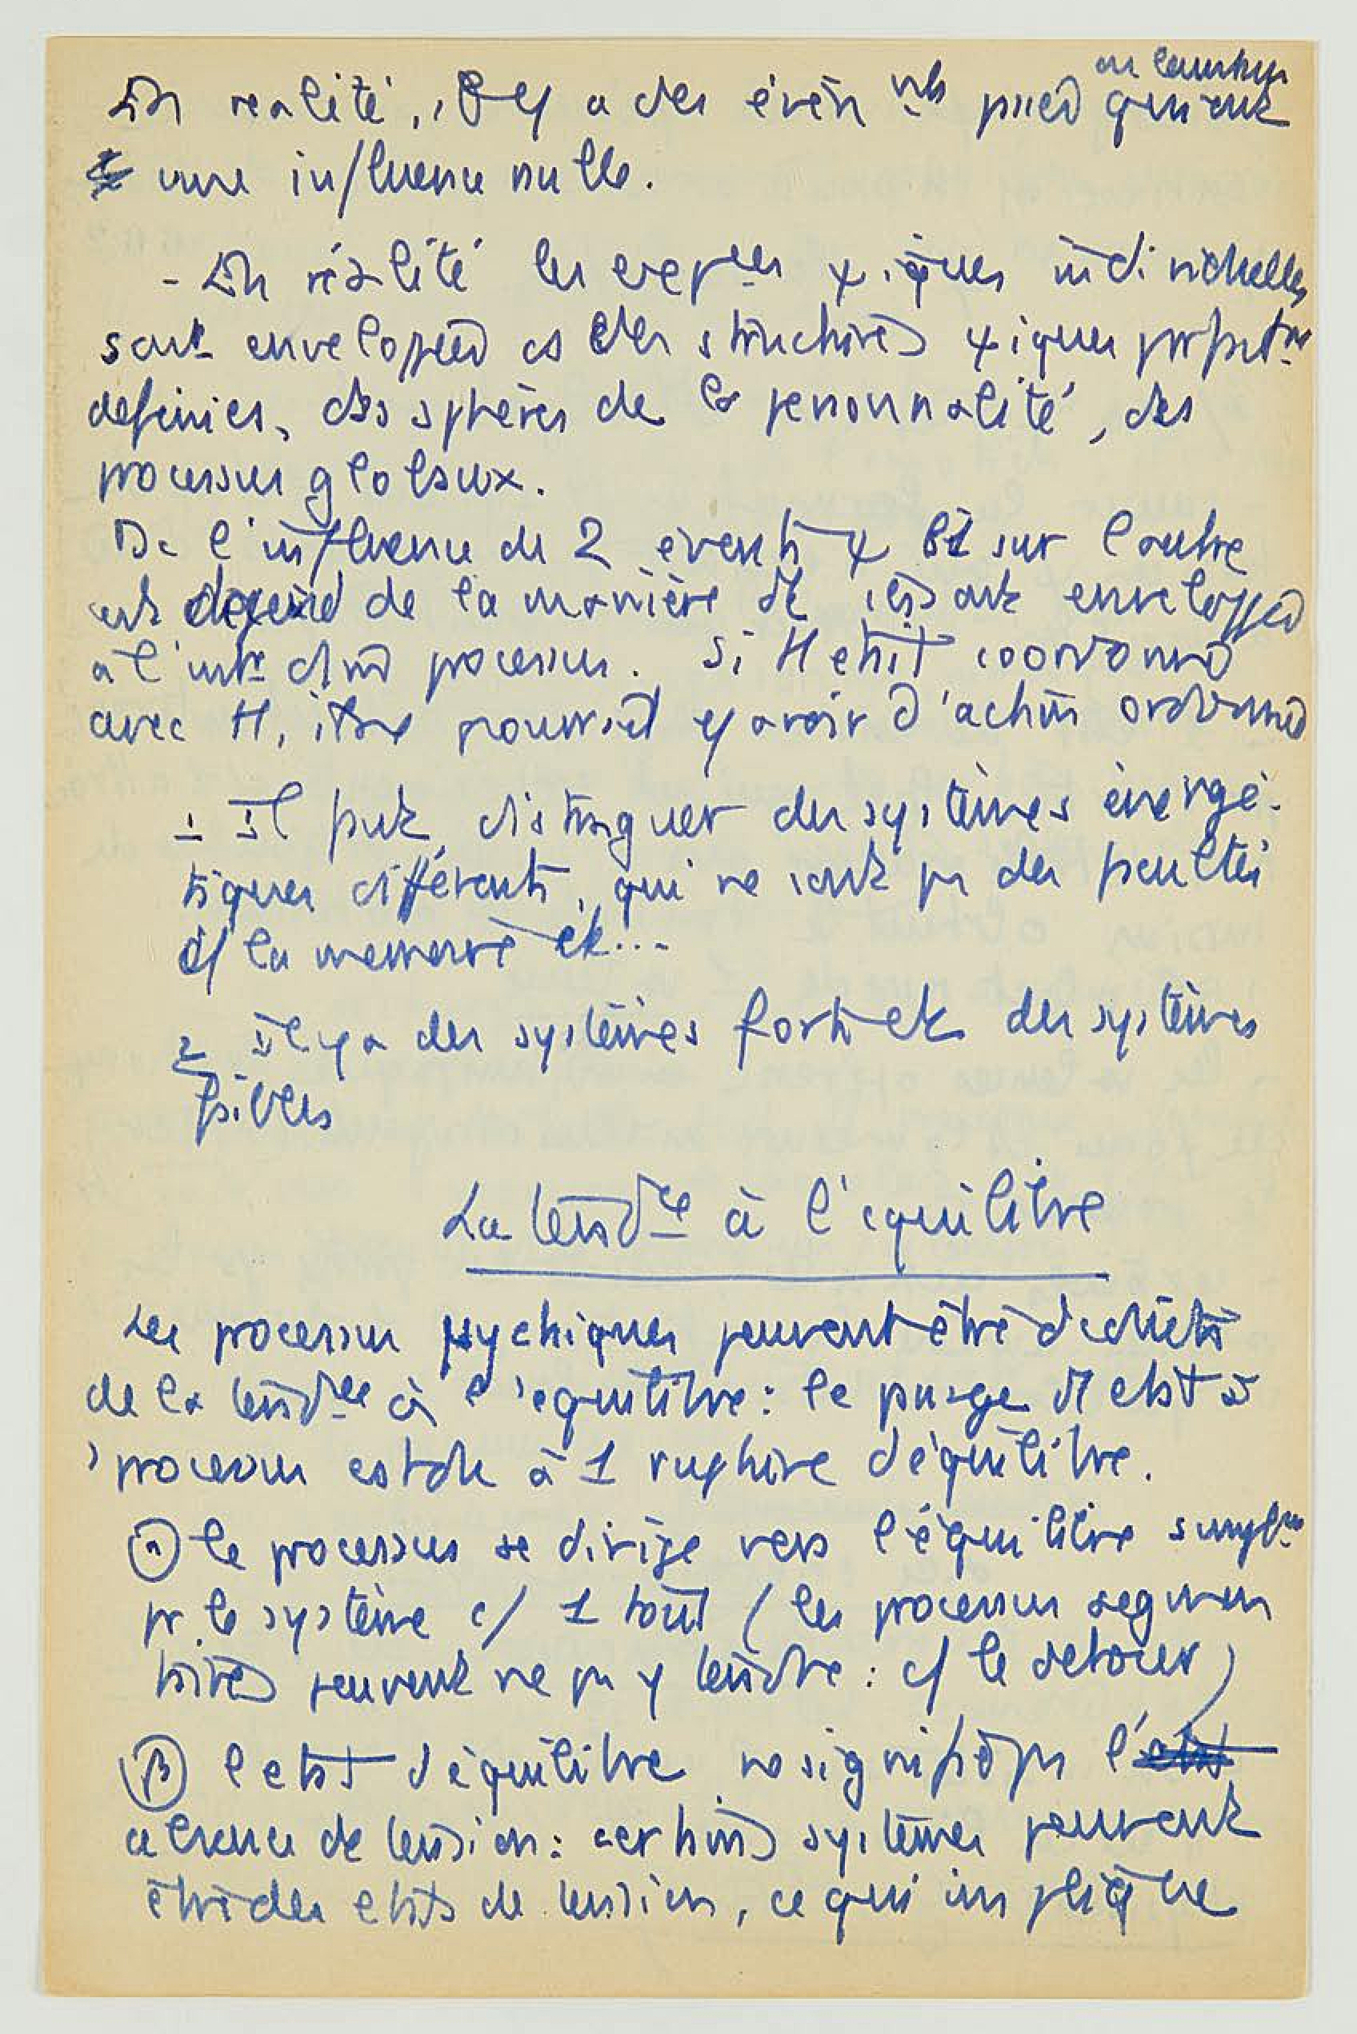 En réalité, il y a des évèn nts pned qui ont
une influence nulle.
- En réalité les ψ iques individuelles
sont enveloppées ds des structures ψ iques
définies, des sphères de la personnalité, des
processus globaux.
De l'influence de 2 eventts ψ sur l'autre
depend de la manière dt ils sont enveloppés
à l'intr d'un processus. Si H etait coordonné
avec H, il ne pourrait y avoir d'action ordonnée
1 Il faut distinguer des systèmes énergé-
tiques différents, qui ne sont pas des facultés
c/ la memoire etc...
2 Il y a des systèmes forts et des systèmes
faibles
La tendce à l'equilibre
Les processus psychiques peuvent être déduits
de la tendce à l'equilibre : le passge d'1 etat à
1 processus est dû à 1 rupture d'équilibre.
α le processus se dirige vers l'équilibre
pr le système c/ 1 tout (les processus segmen
taires peuvent ne pas y tendre : c/ le detour)
β l'etat d'équilibre ne signifie pas l'etat
absence de tension : certains systèmes peuvent
être des etats de tension, ce qui implique